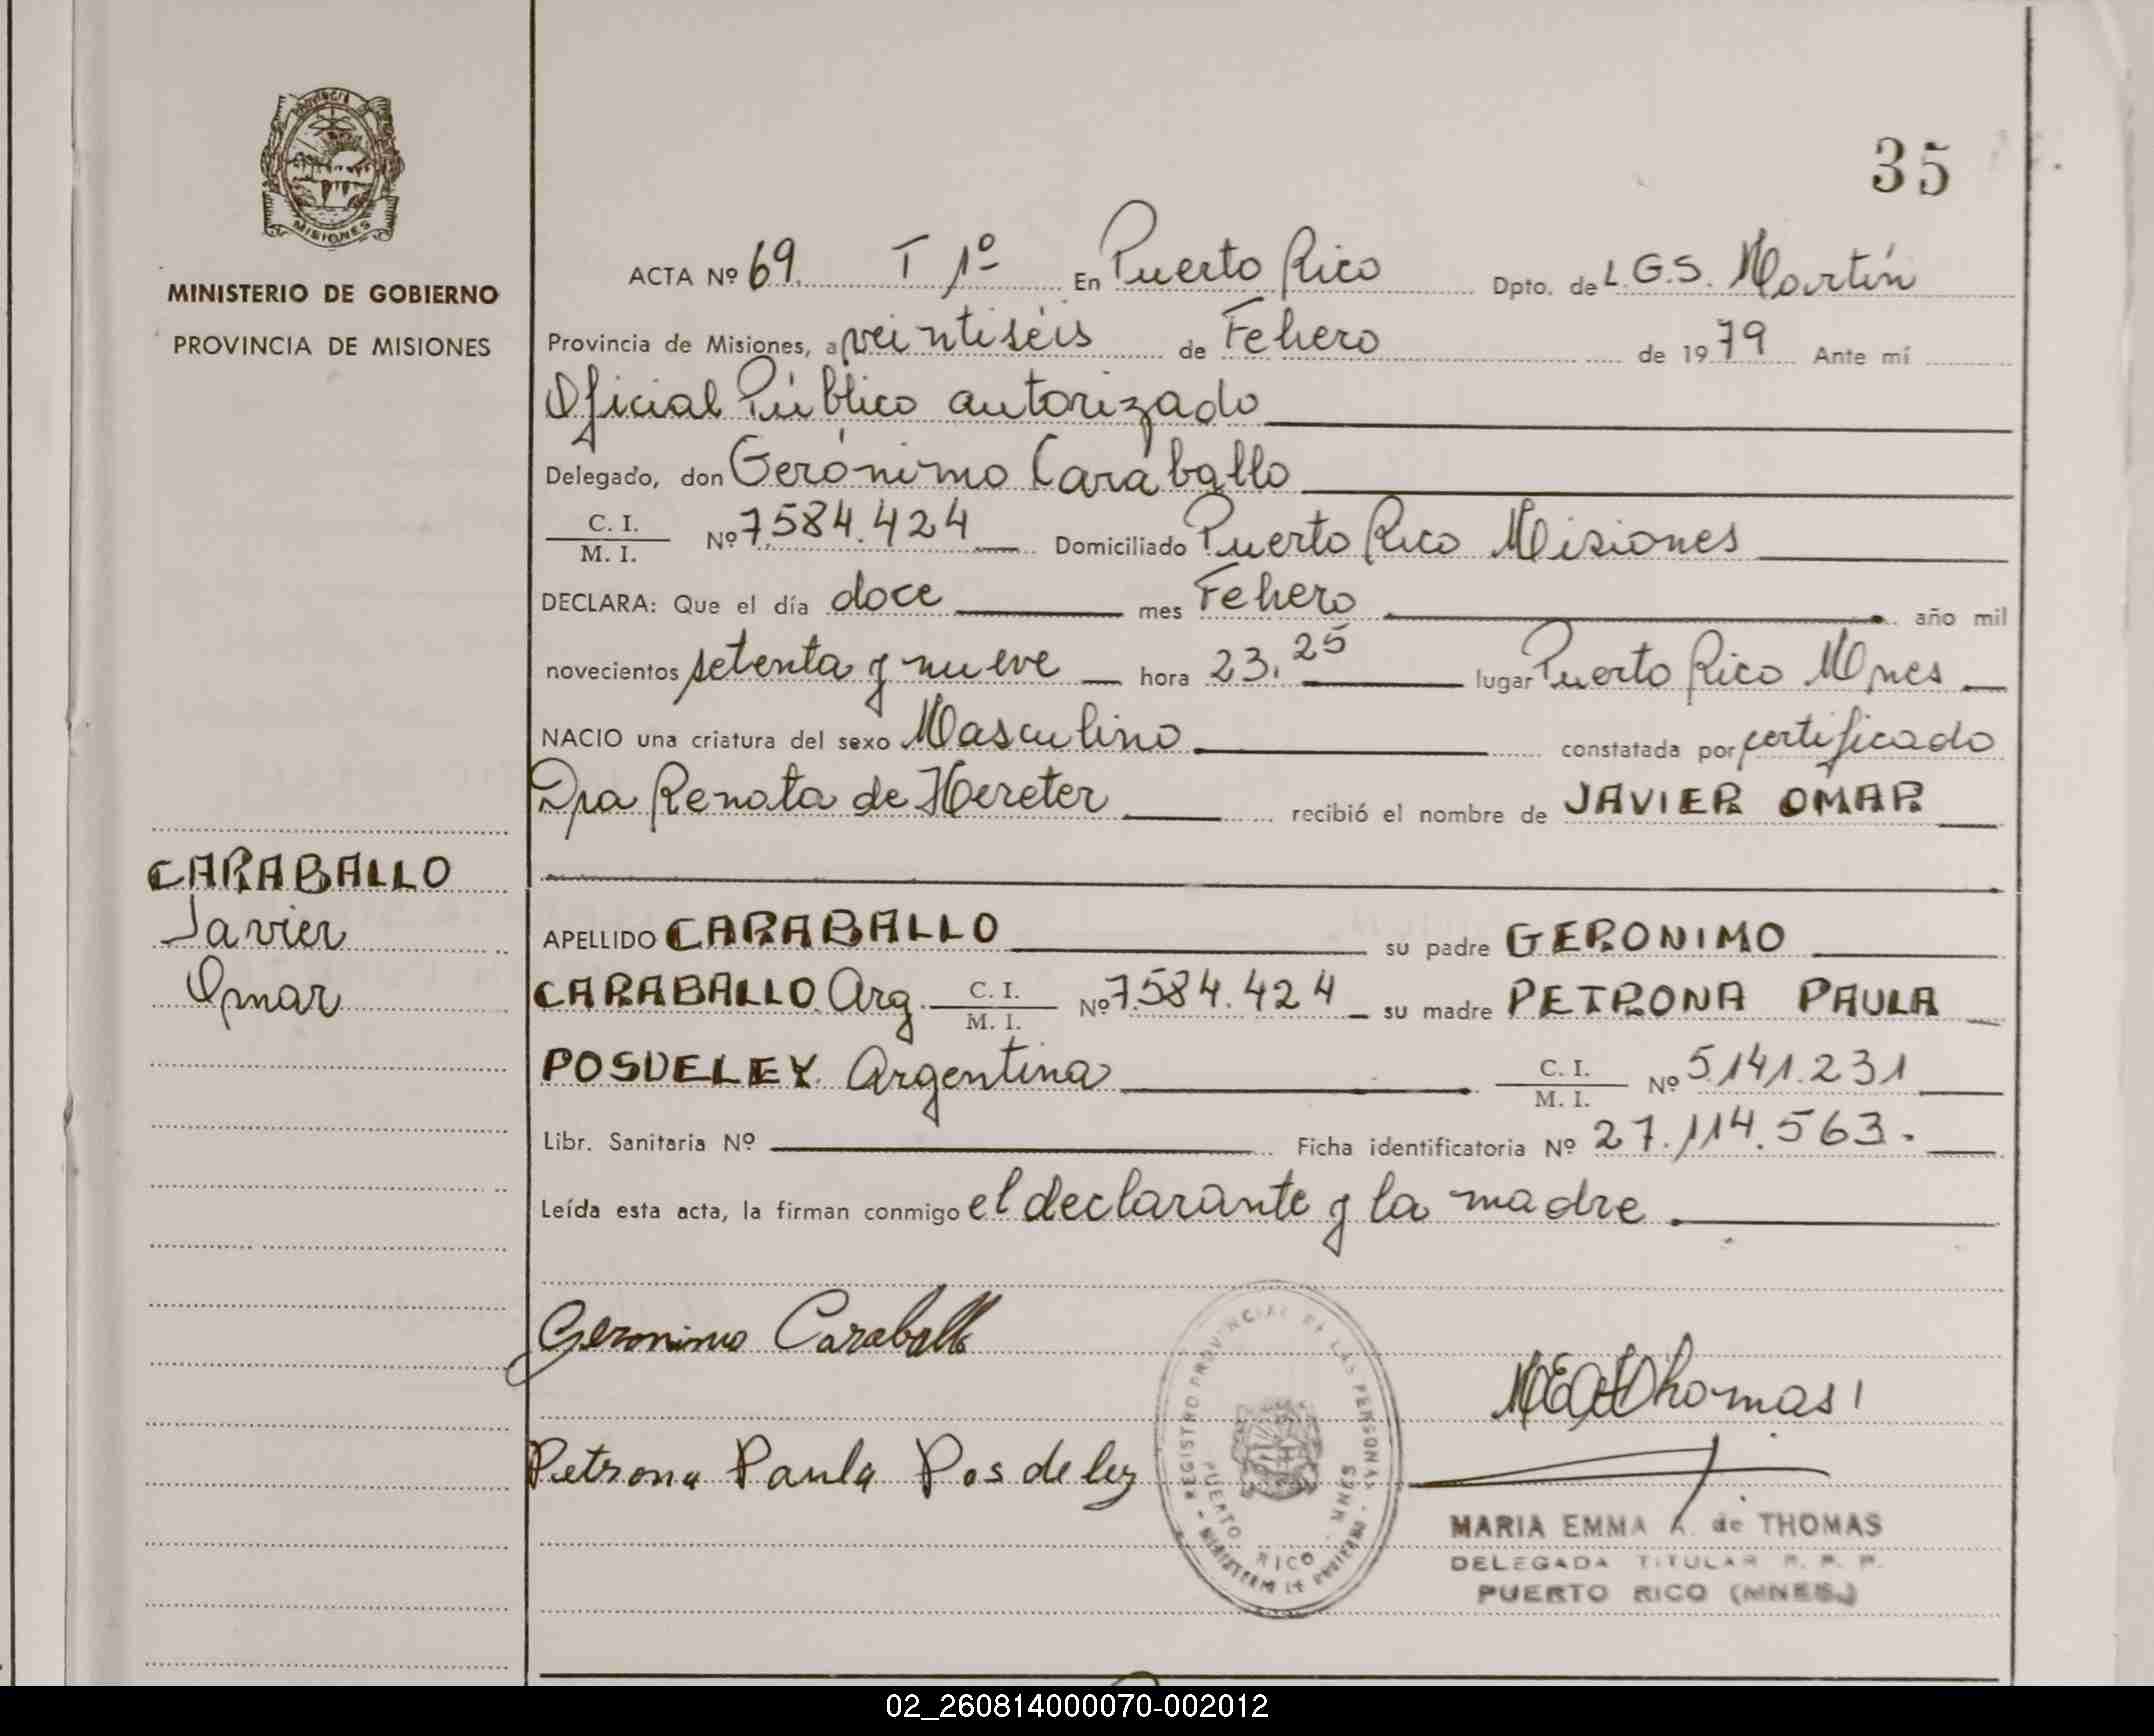 PROVINCIA DE
MISIONES
MINISTERIO DE GOBIERNO
PROVINCIA DE MISIONES
CARABALLO
Javier
Omar
35
ACTA Nº 69. T 1º En Puerto Rico Dpto. de L.G.S. Martín
Provincia de Misiones, a veintiséis de Febrero de 1979 Ante mí
Oficial Público autorizado
Delegado, don Gerónimo Caraballo
C. I. / M. I. Nº 7.584.424 Domiciliado Puerto Rico Misiones
DECLARA: Que el día doce mes Febrero año mil
novecientos setenta y nueve hora 23.25 lugar Puerto Rico Mnes
NACIO una criatura del sexo Masculino constatada por certificado
Dra Renata de Hereter recibió el nombre de JAVIER OMAR
APELLIDO CARABALLO su padre GERONIMO
CARABALLO. Arg. C. I. / M. I. Nº 7.584.424 su madre PETRONA PAULA
POSDELEY. Argentina C. I. / M. I. Nº 5.141.231
Libr. Sanitaria Nº Ficha identificatoria Nº 27.114.563.
Leída esta acta, la firman conmigo el declarante y la madre.
Geronimo Caraballo
Petrona Paula Posdeley
REGISTRO PROVINCIAL DE LAS PERSONAS
- MINISTERIO DE GOBIERNO -
PUERTO RICO - MNES
MEAdThomas
MARIA EMMA A. de THOMAS
DELEGADA TITULAR R. P. P.
PUERTO RICO (MNES.)
02_260814000070-002012